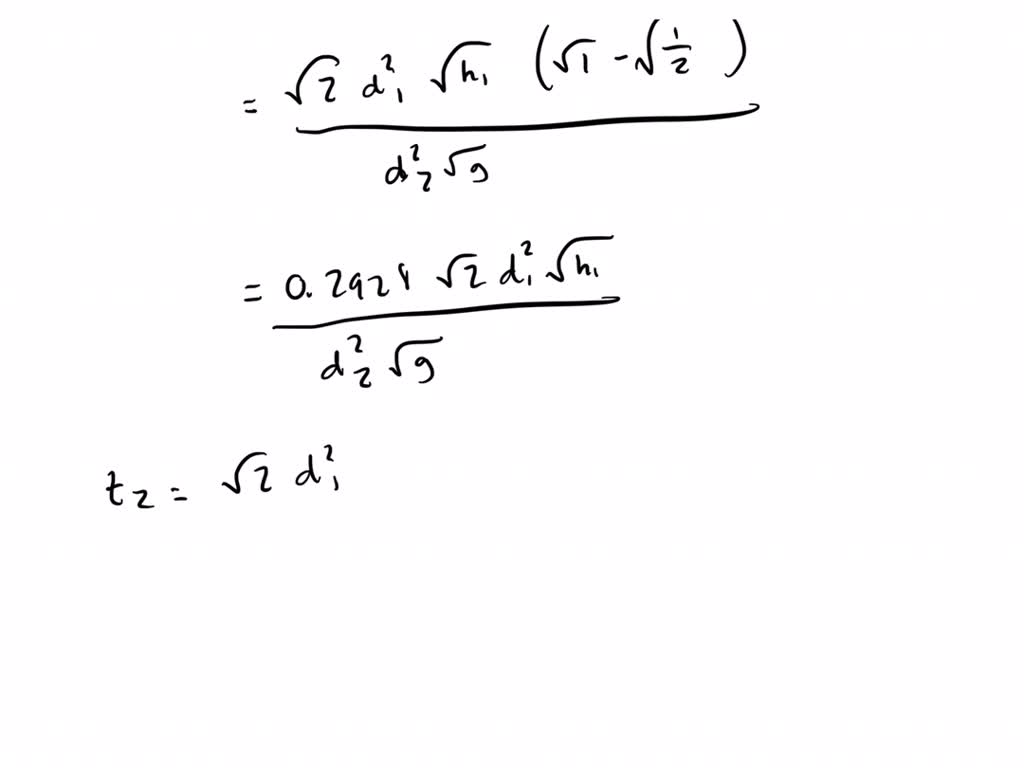 = √2 d₁² √h₁ (√1 - √(1/2)) / d₂² √g
= 0.2928 √2 d₁² √h₁ / d₂² √g
t₂ = √2 d₁²